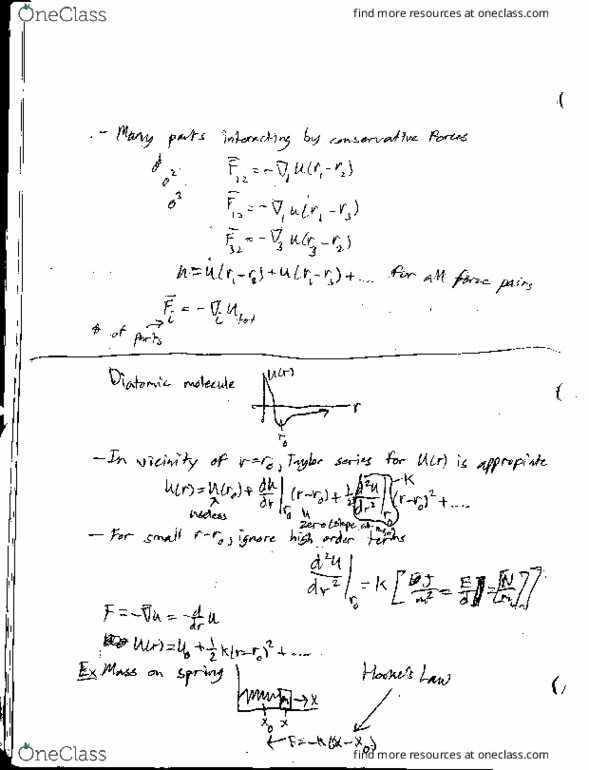 OneClass
find more resources at oneclass.com
- Many parts interacting by conservative Forces
1
2
3
F̄₁₂ = -∇₁ U(r₁-r₂)
F̄₁₃ = -∇₁ u(r₁-r₃)
F̄₃₂ = -∇₃ u(r₃-r₂)
u = u(r₁-r₂) + u(r₁-r₃) + .... for all force pairs
F̄ᵢ = -∇ᵢ Utot
# of parts
Diatomic molecule
U(r)
r
r₀
- In vicinity of r=r₀, Taylor series for U(r) is appropiate
U(r) = U(r₀) + du/dr|r₀ (r-r₀) + 1/2 d²u/dr²|r₀ (r-r₀)² + ....
K
useless
zero (slope at min)
- For small r-r₀, ignore high order terms
d²u/dr²|r₀ = K [J/m² = E/d = [N/m]]
F = -∇u = -d/dr u
U(r) = U₀ + 1/2 K(r-r₀)² + ....
Ex Mass on spring
Hooke's Law
m
→ X
x₀ x
← F = -K(x-x₀)
OneClass
find more resources at oneclass.com